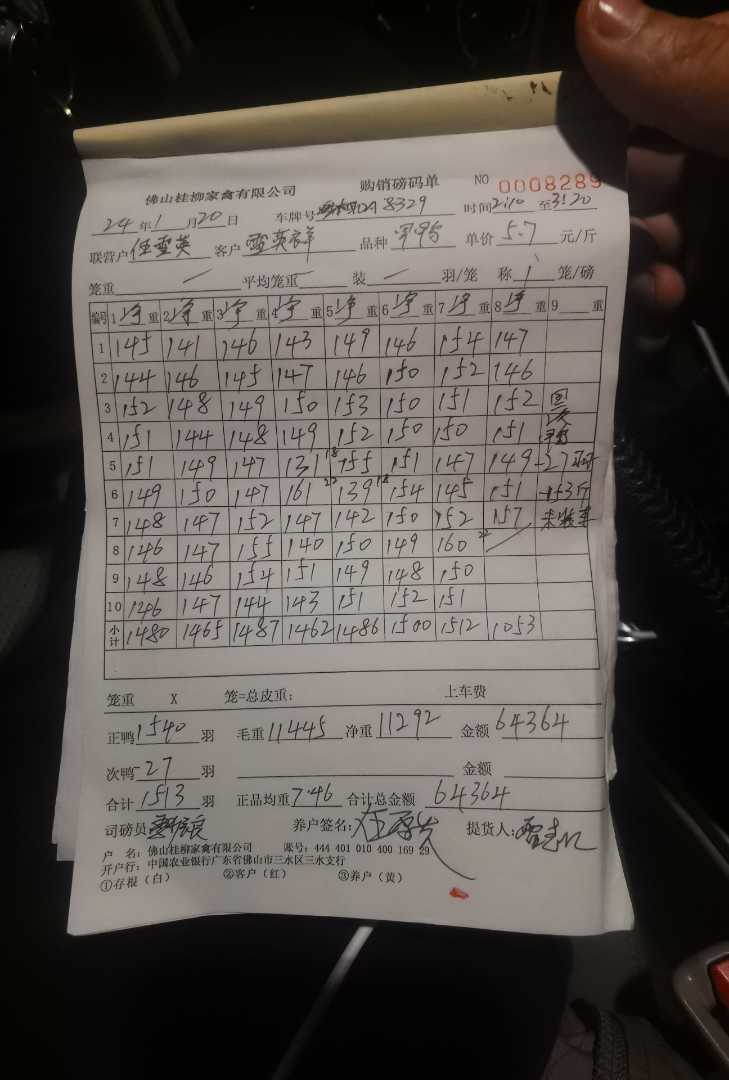 佛山桂柳家禽有限公司 购销磅码单 NO 0008289
24年1月20日 车牌号 DA 8329 时间2:10至3:20
联营户任雪英 客户 英祥 品种 单价5.7元/斤
笼重 / 平均笼重 装 / 羽/笼 称 1 笼/磅
编号 1净重 2净重 3净重 4净重 5净重 6净重 7净重 8净重 9 重
1 145 141 146 143 149 146 154 147
2 144 146 145 147 146 150 152 146
3 152 148 149 150 153 150 151 152
4 151 144 148 149 152 150 150 151
5 151 149 147 131 18 155 151 147 149 -27羽
6 149 150 147 161 22 139 18 154 145 151 -153斤
7 148 147 152 147 142 150 152 157 未装车
8 146 147 155 140 150 149 160 22
9 148 146 154 151 149 148 150
10 146 147 144 143 151 152 151
小计 1480 1465 1487 1462 1486 1500 1512 1053
笼重 X 笼=总皮重: 上车费
正鸭1540羽 毛重11445 净重11292 金额64364
次鸭-27羽 金额
合计1513羽 正品均重7.46 合计总金额 64364
司磅员 养户签名: 提货人:
户 名: 佛山桂柳家禽有限公司 账号: 444 401 010 400 169 29
开户行: 中国农业银行广东省佛山市三水区三水支行
①存根（白） ②客户（红） ③养户（黄）